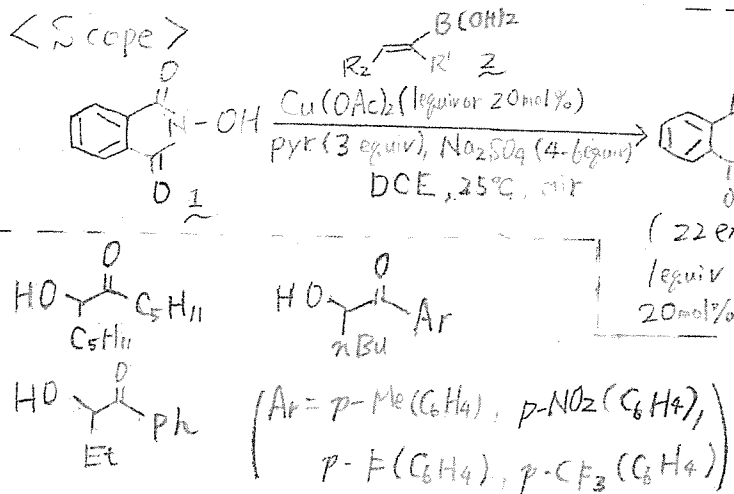 <Scope>
B(OH)2
R2 R' 2
O
N-OH
O 1
Cu(OAc)2 (1equiv or 20mol%)
pyr (3 equiv), Na2SO4 (4-6equiv)
DCE, 25°C, air
O
(22 ex
1equiv
20mol%
HO O C5H11
C5H11
HO O Ar
nBu
HO O Ph
Et
(Ar = p-Me(C6H4), p-NO2(C6H4),
p-F(C6H4), p-CF3(C6H4))